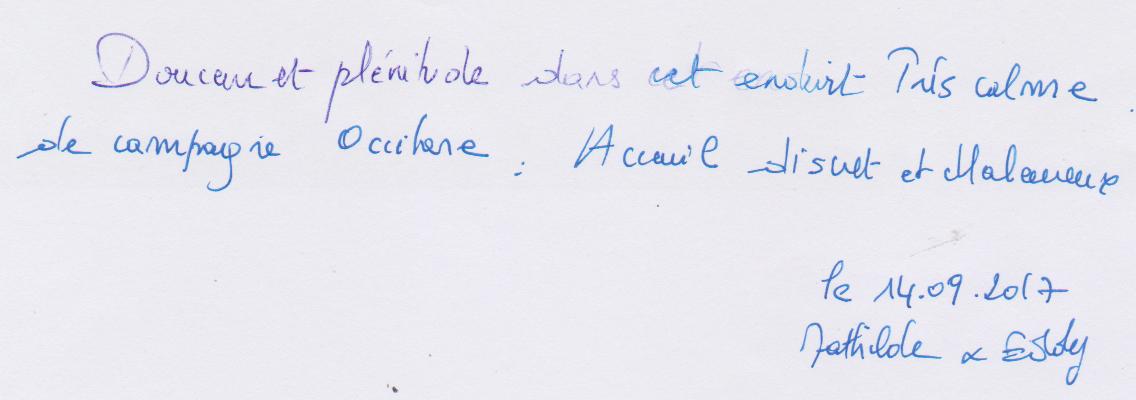 Douceur et plénitude dans cet endroit Très calme
de campagne Occitane. Accueil discret et chaleureux
le 14.09.2017
Mathilde &